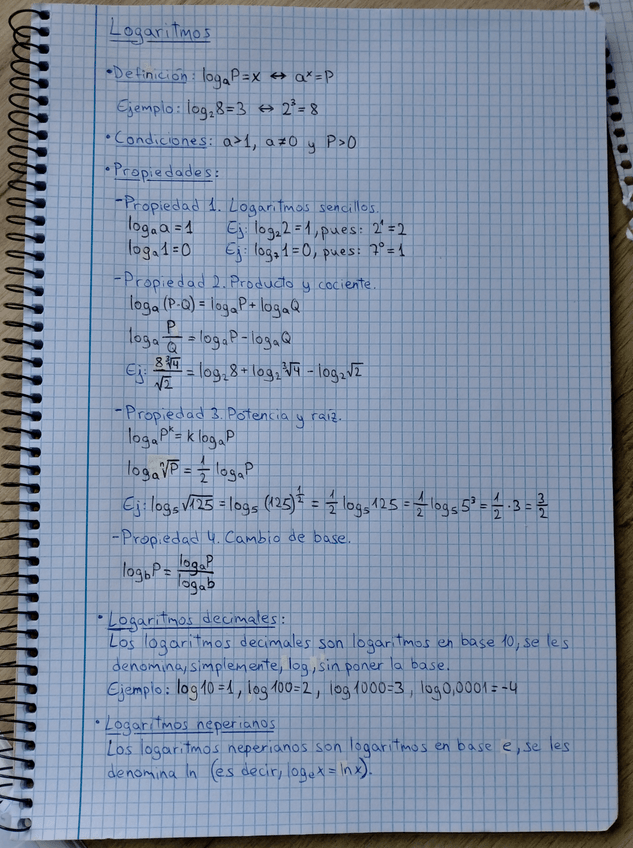 Logaritmos
•Definición: logₐP=x ↔ aˣ=P
Ejemplo: log₂8=3 ↔ 2³=8
•Condiciones: a>1, a≠0 y P>0
•Propiedades:
-Propiedad 1. Logaritmos sencillos.
logₐa=1 Ej: log₂2=1, pues: 2¹=2
logₐ1=0 Ej: log₇1=0, pues: 7⁰=1
-Propiedad 2. Producto y cociente.
logₐ(P·Q)=logₐP+logₐQ
logₐ P/Q = logₐP-logₐQ
Ej: 8∛4/√2 = log₂8+log₂∛4-log₂√2
-Propiedad 3. Potencia y raíz.
logₐPᵏ=k logₐP
logₐⁿ√P = 1/2 logₐP
Ej: log₅√125 = log₅(125)^1/2 = 1/2 log₅125 = 1/2 log₅5³ = 1/2·3 = 3/2
-Propiedad 4. Cambio de base.
log_bP = logₐP/logₐb
•Logaritmos decimales:
Los logaritmos decimales son logaritmos en base 10, se les
denomina, simplemente, log, sin poner la base.
Ejemplo: log10=1, log100=2, log1000=3, log0,0001=-4
•Logaritmos neperianos
Los logaritmos neperianos son logaritmos en base e, se les
denomina ln (es decir, logₑx=lnx).